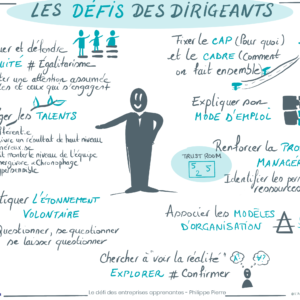 LES DÉFIS DES DIRIGEANTS
uer et défendre
UITÉ # Égalitarisme
une attention assumée
et ceux qui s'engagent
ger les TALENTS
un résultat de haut niveau
monter le niveau de l'équipe
"Chronophage"
tiquer L'ÉTONNEMENT
VOLONTAIRE
Questionner, se questionner
se laisser questionner
Fixer le CAP (Pour quoi)
et le CADRE (Comment
on fait ensemble)
Expliquer son
MODE D'EMPLOI
TRUST ROOM
Renforcer la PRO
MANAGÉR
Identifier les per
ressource
Associer les MODÈLES
D'ORGANISATION
Chercher à "voir la réalité"
EXPLORER # Confirmer
Le défi des entreprises apprenantes - Philippe Pierre